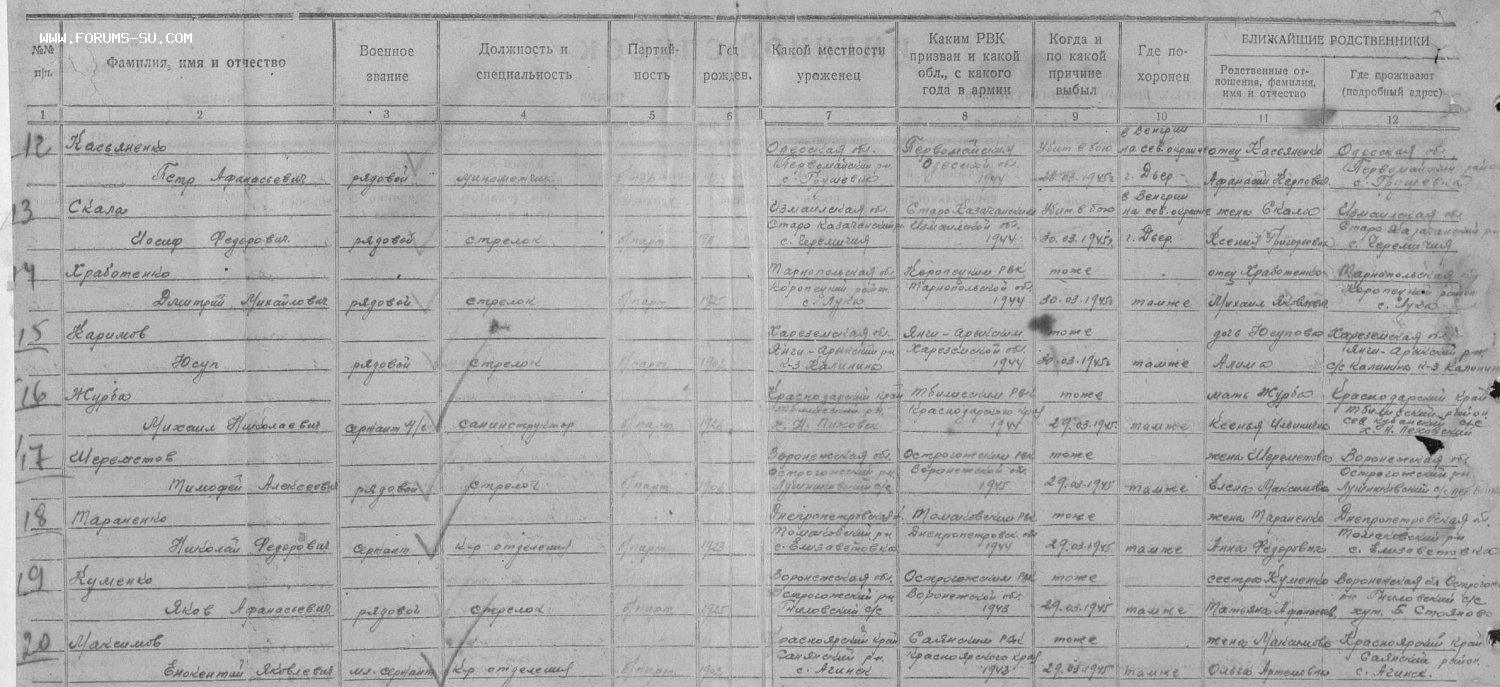 WWW.FORUMS-SU.COM
№№ п/п.
Фамилия, имя и отчество
Военное звание
Должность и специальность
Партий-ность
Год рожден.
Какой местности уроженец
Каким РВК призван и какой обл., с какого года в армии
Когда и по какой причине выбыл
Где по-хоронен
БЛИЖАЙШИЕ РОДСТВЕННИКИ
Родственные от-ношения, фамилия, имя и отчество
Где проживают (подробный адрес)
1 2 3 4 5 6 7 8 9 10 11 12
в Венгрии
12 Касьяненко Одесская обл. Первомайским Убит в бою на сев. окраине отец Касьяненко Одесская обл.
Первомайский рн. Одесской обл. Первомайский район
Петр Афанасьевич рядовой минометчик с. Грушевка 1944 30.03.1945г г. Двер Афанасий Карпович с. Грушевка
в Венгрии
13 Скала Измаильская обл. Старо Казачанским Убит в бою на сев. окраине жена Скала Измаилская обл.
Старо Казачанский р. Измаилской обл. Старо Казачанский рн
Иосиф Федорович рядовой стрелок б/парт с. Черемичия 1944 30.03.1945г г. Двер Ксения Григорьевна с. Черемичия
14 Хработенко Тарнопольская обл. Коропецким РВК тоже отец Хработенко Тарнопольская обл
Коропецкий район. Тарнопольской обл. Коропецкий район
Дмитрий Михайлович рядовой стрелок б/парт 1925 с. Лука 1944 30.03.1945г тамже Михаил Яковлевич с. Лука
15 Каримов Харезмская обл. Янги-Арыкским тоже дочь Юсупова Харезмская обл.
Янги-Арыкский рн. Харезмской обл. Янги-Арыкский рн
Юсуп рядовой стрелок б/парт к-з Калинина 1944 30.03.1945г тамже Алима с/с Калинина к-з Калинина
16 Журба Краснодарский край Тбилисским РВК тоже мать Журба Краснодарский край
Тбилисский рн. Краснодарского края Тбилисский район
Михаил Николаевич сержант м/с санинструктор б/парт х. Н. 1944 29.03.1945 тамже Ксенья Ильинична х. Н.
17 Шереметов Воронежская обл. Острогожским РВК тоже жена Шереметова Воронежская обл
Острогожский рн Воронежской обл. Острогожский рн
Тимофей Алексеевич рядовой стрелок б/парт Лушниковский с/с 1945 29.03.1945 тамже Елена Максимовна Лушниковский с/с
18 Тараненко Днепропетровская о. Томаковским РВК тоже жена Тараненко Днепропетровская обл.
Томаковский рн Днепропетровск обл. Томаковский рн
Николай Федорович сержант к-р отделения б/парт 1923 с. Елизаветовка 1944 29.03.1945 тамже Анна Федоровна с. Елизаветовка
19 Куменко Воронежская обл. Острогожским РВК тоже сестра Куменко Воронежская обл Острогож
Острогожский рн Воронежской обл. рн Гниловский с/с
Яков Афанасьевич рядовой стрелок б/парт 1925 Гниловский с/с 1943 29.03.1945 тамже Татьяна Афанасьев хут. Б. Стояново
20 Максимов Красноярский край Саянским РВК тоже жена Максимова Красноярский край
Саянский рн. Красноярского края Саянский район.
Енокентий Яковлевич мл. сержант к-р отделения б/парт с. Агинск 1943 29.03.1945 тамже Ольга Артемовна с. Агинск.